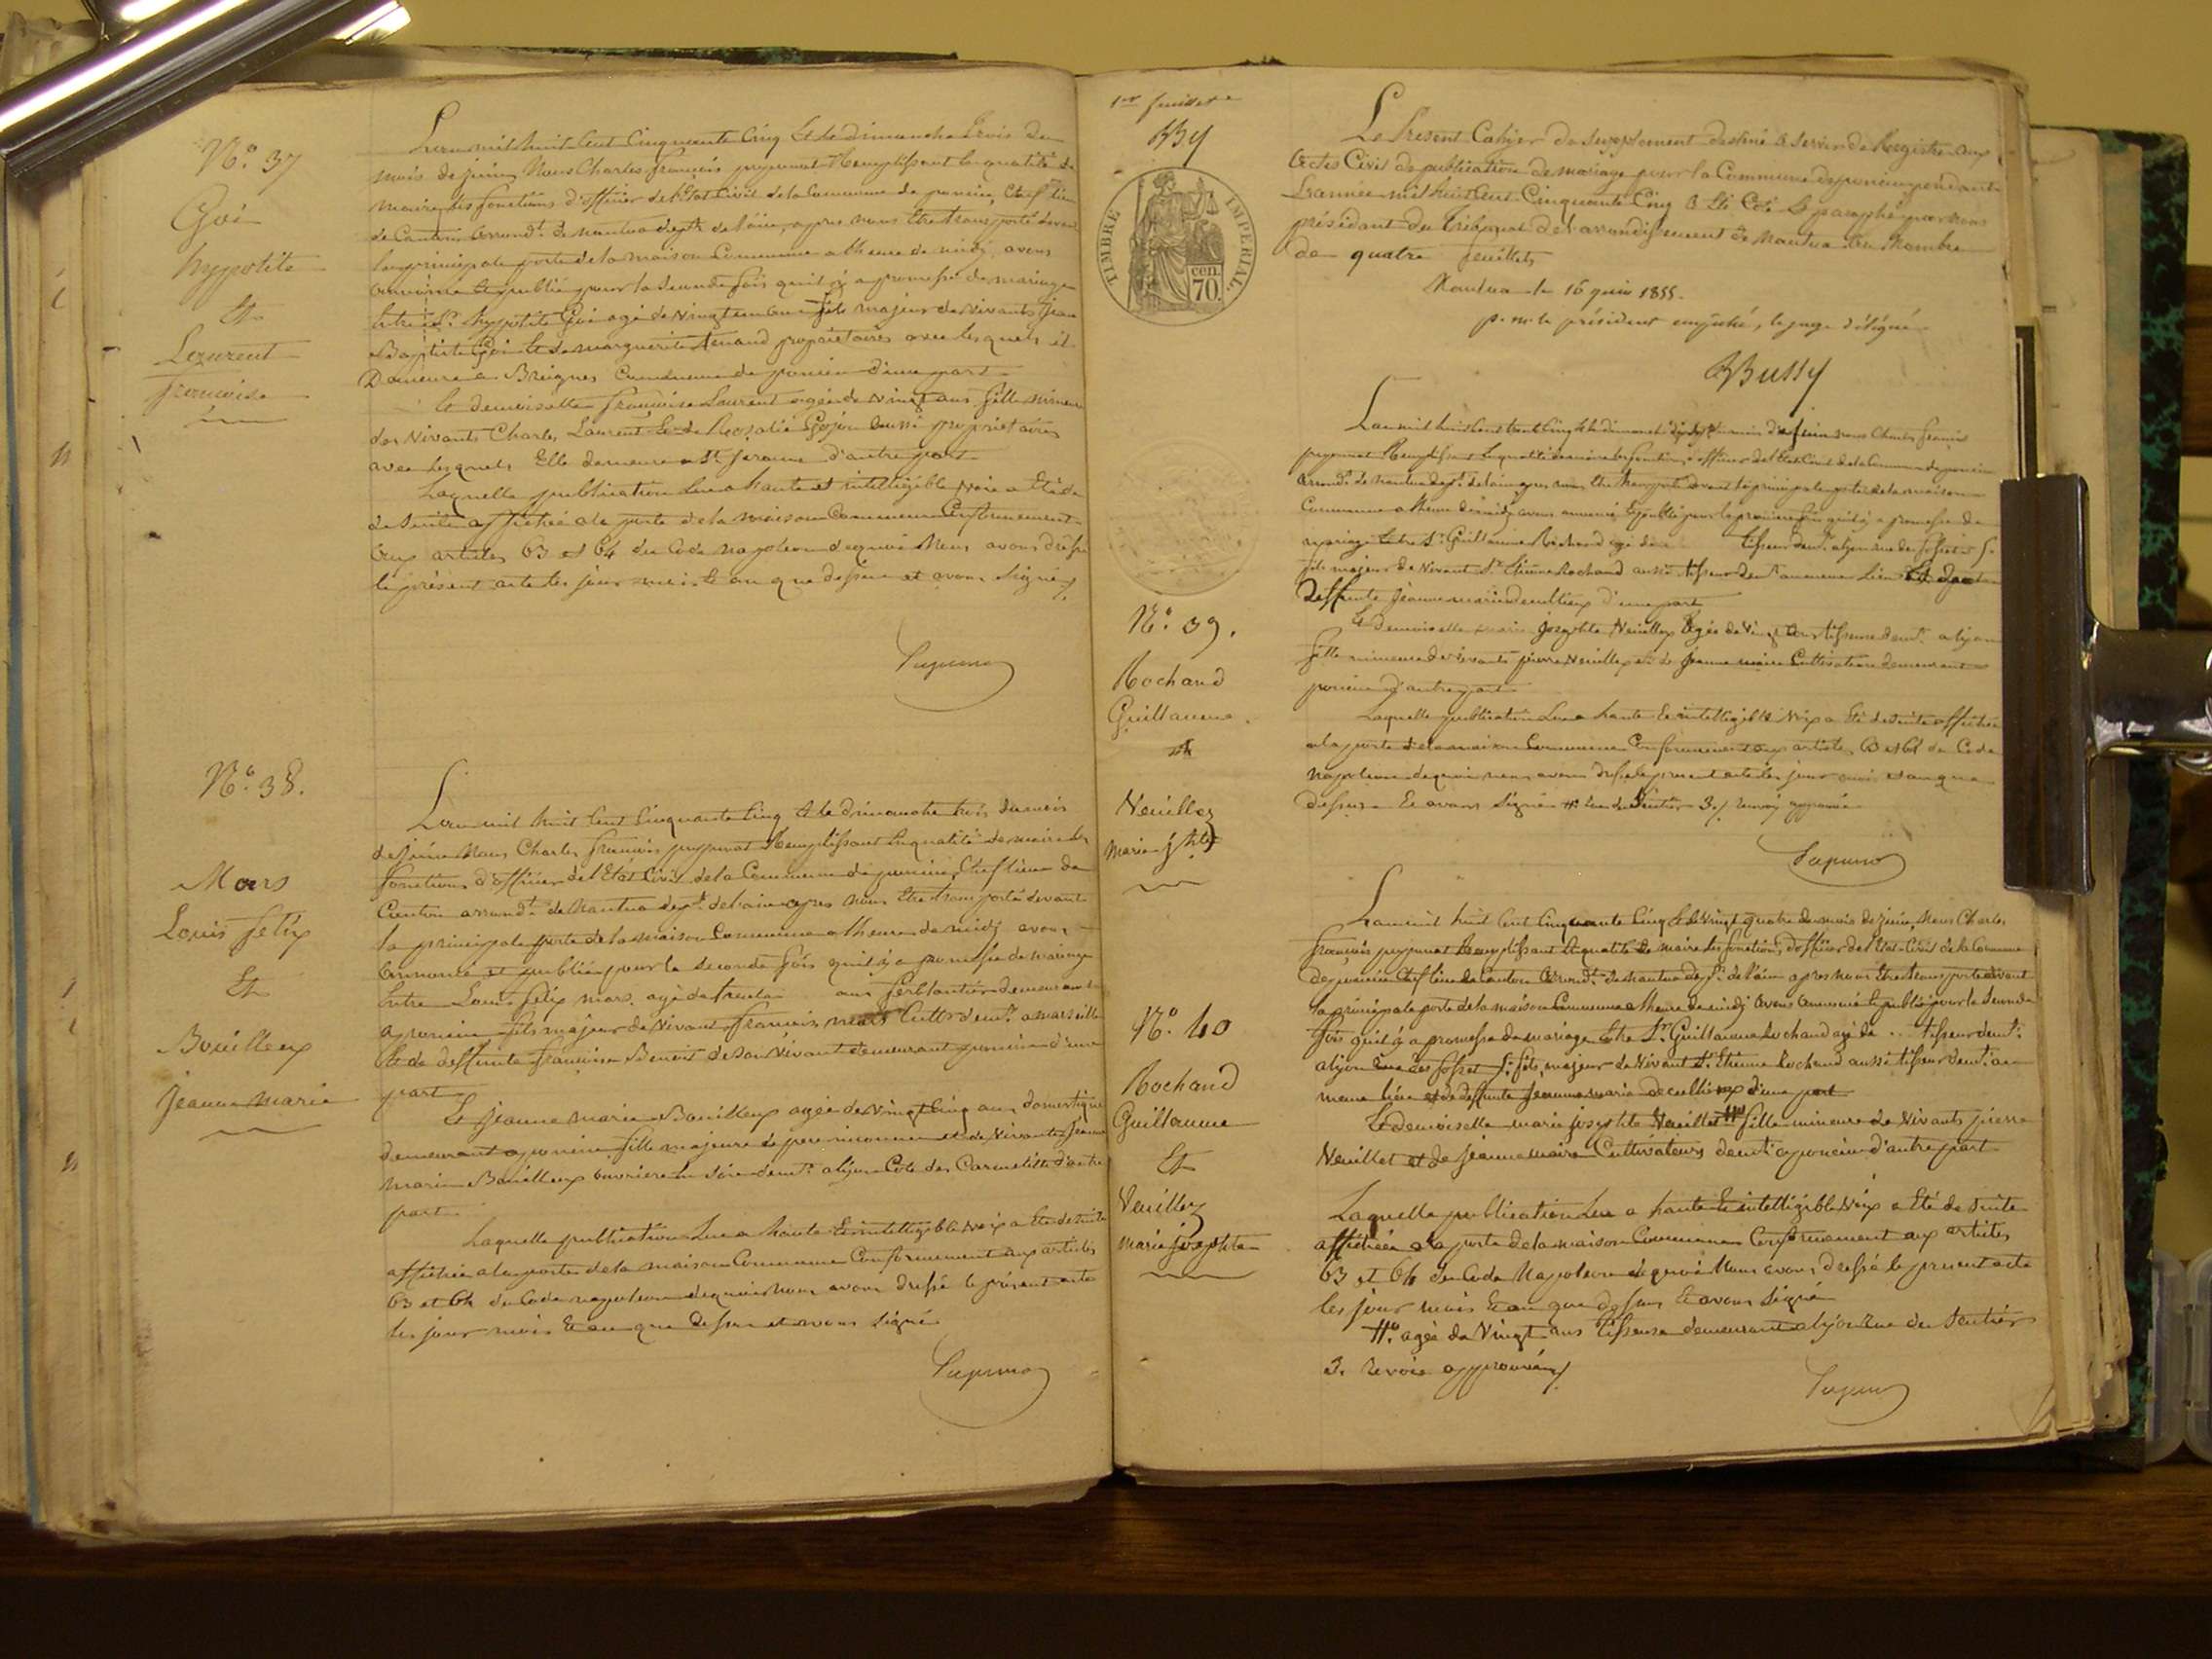 N° 37
Goi
hypolite
Et
Laurent
françoise
L'an mil huit Cent Cinquante Cinq Et le dimanche trois du
mois de juin Nous Charles françois Remplissant la qualité de
maire les fonctions d'officier de l'Etat Civil de la Commune de poncin, Chef lieu
de Canton arrondt de nantua dept de l'ain, apres nous Etre transporté devant
la principale porte de la maison Commune a lheure de midi, avons
annoncé Et publié pour la seconde fois quil y a promesse de mariage
Entre sr hypolite Goi agé de vingt un ans fils majeur de vivants jean
Baptiste Goi Et de marguerite propriétaires avec lesquels il
Demeure a Breignes Commune de poncin d'une part
Et demoiselle françoise Laurent agée de vingt ans fille mineure
des vivants Charles Laurent Et de Rosalie Gojon aussi propriétaires
avec lesquels Elle demeure a St jerome d'autre part
Laquelle publication lue a haute et intelligible voix a Eté de
de suite affichée a la porte de la maison Commune Conformement
aux articles 63 et 64 du Code napoleon dequoi Nous avons dressé
le présent acte les jour mois Et an que dessus et avons signé
N° 38.
Mars
Louis félix
Et
Bouilloux
jeanne marie
L'an mil huit Cent Cinquante Cinq Et le dimanche trois du mois
de juin Nous Charles françois Remplissant la qualité de maire les
fonctions d'officier de l'Etat Civil de la Commune de poncin, Chef lieu de
Canton arrondt de Nantua dept de l'ain apres nous Etre transporté devant
la principale porte de la maison Commune a lheure de midi avons
annoncé et publié pour la seconde fois quil y a promesse de mariage
Entre Louis félix mars agé de trente ans ferblantier demeurant
a poncin fils majeur de vivant françois mars demt a marseille
Et de deffunte françoise Benoit de son vivant demeurant poncin d'une
part
Et jeanne marie Bouilloux agée de vingt cinq ans domestique
demeurant a poncin fille majeure de pere inconnu et de vivante jeanne
marie Bouilloux ouvriere en soie demt a lyon Cote des Carmelites d'autre
part
Laquelle publication lue a haute Et intelligible voix a Eté de suite
affichée a la porte de la maison Commune Conformement aux articles
63 et 64 du Code napoleon dequoi Nous avons dressé le présent acte
les jour mois Et an que dessus et avons signé
1er feuillet
TIMBRE IMPERIAL
70 cen.
Le Present Cahier de Supplement destiné a servir de Registre aux
actes Civil de publication de mariage pour la Commune de poncin pendant
L'année mil huit Cent Cinquante Cinq a Eté Coté Et paraphé par nous
président du tribunal de l'arrondissement de Nantua au Nombre
de quatre feuillets
Nantua le 16 juin 1855.
p. mr le président empêché, le juge délégué
BBussy
N° 39.
Rochand
Guillaume
et
Veuillez
Marie jphte
L'an mil huit Cent Cinquante Cinq Et le dimanche dix sept du mois de juin nous Charles françois
Remplissant la qualité de maire les fonctions d'officier de l'Etat Civil de la Commune de poncin
arrondt de Nantua dept de l'ain apres nous Etre transporté devant la principale porte de la maison
Commune a lheure de midi avons annoncé Et publié pour la premiere fois quil y a promesse de
mariage Entre Sr Guillaume Rochand agé de tisseur demt a lyon rue des fossets 5.
fils majeur de vivant Sr Etienne Rochand aussi tisseur demt au meme lieu Et de
Deffunte jeanne marie d'une part
Et demoiselle marie josephte Veuillez agée de vingt ans tisseuse demt a lyon
fille mineure de vivants pierre Veuillez et de jeanne marie Cultivateurs demeurant a
poncin d'autre part
Laquelle publication lue a haute Et intelligible voix a Eté de suite affichée
a la porte de la maison Commune Conformement aux articles 63 et 64 du Code
Napoleon dequoi nous avons dressé le present acte les jour mois et an que
dessus Et avons signé # rue du Sentier 3./ renvoi approuvé
N° 40
Rochand
Guillaume
Et
Veuillez
marie josephte
L'an mil huit Cent Cinquante Cinq Et le vingt quatre du mois de juin, Nous Charles
françois Remplissant la qualité de maire les fonctions d'officier de l'Etat Civil de la Commune
de poncin Chef lieu de Canton arrondt de Nantua dept de l'ain apres nous Etre transporté devant
la principale porte de la maison Commune a lheure de midi avons annoncé Et publié pour la seconde
fois quil y a promesse de mariage Entre Sr Guillaume Rochand agé de ... tisseur demt
a lyon rue des fossets 5. fils majeur de vivant Sr Etienne Rochand aussi tisseur demt au
meme lieu et de deffunte jeanne marie d'une part
Et demoiselle marie josephte Veuillet # fille mineure de vivants pierre
Veuillet et de jeanne marie Cultivateurs demt a poncin d'autre part
Laquelle publication lue a haute Et intelligible voix a Eté de suite
affichée a la porte de la maison Commune Conformement aux articles
63 et 64 du Code Napoleon dequoi Nous avons dressé le present acte
les jour mois Et an que dessus Et avons signé
# agée de vingt ans tisseuse demeurant a lyon rue du Sentier
3. renvoi approuvé